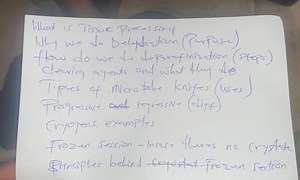 What is Tissue Processing
Why we do Dehydration (purpose)
How do we do deparafinization (steps)
Clearing agents and what they do
Types of microtome knifes (uses)
Progressive and regressive (diff)
Cryogens, examples
Frozen session - house theres no crystate
Principles behind Cryostat Frozen section